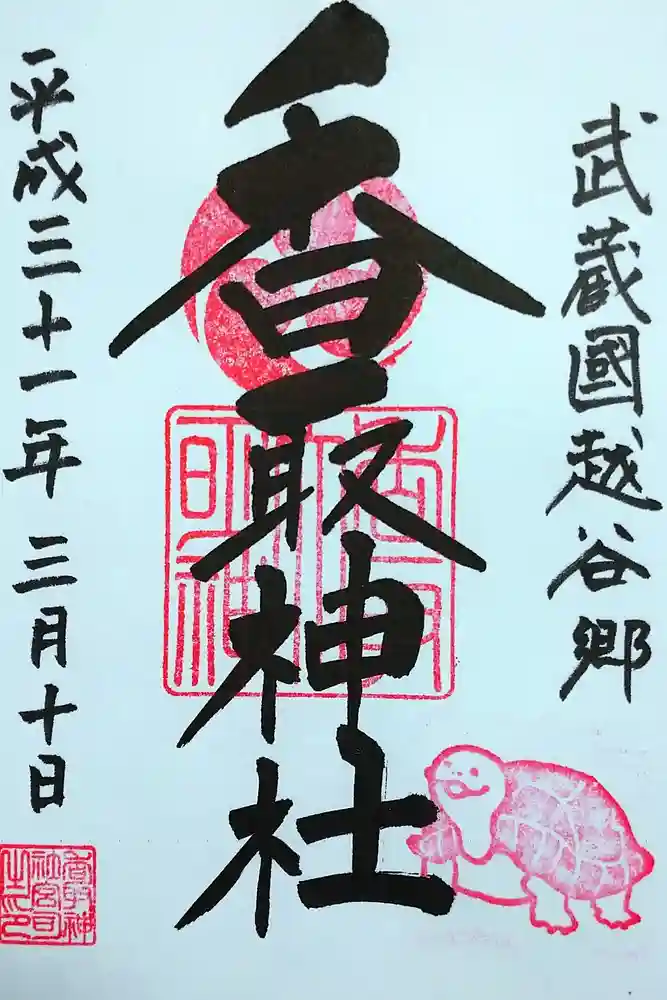 武蔵國越谷郷
香取神社
平成三十一年 三月十日